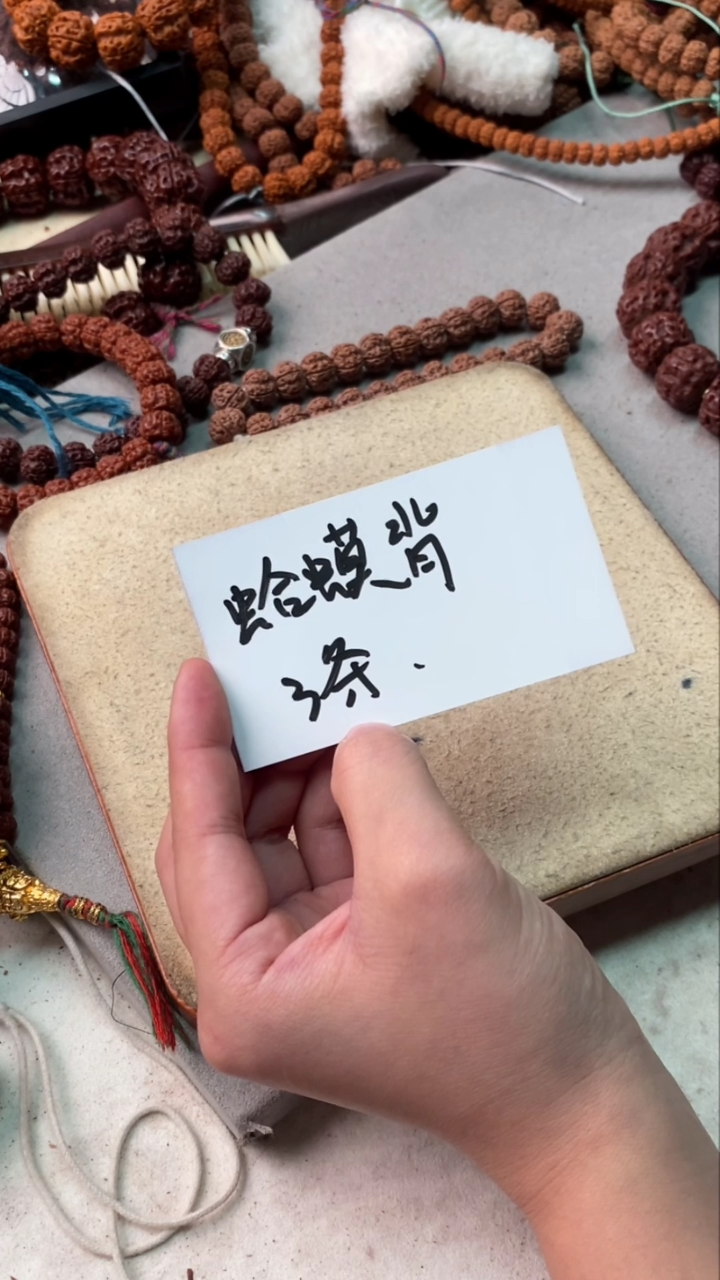 蛤蟆背
3条.